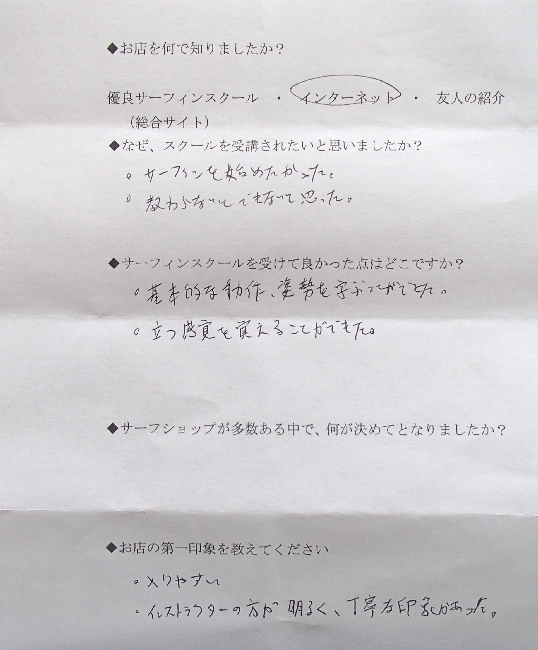 ◆お店を何で知りましたか？
優良サーフィンスクール ・ インターネット ・ 友人の紹介
（総合サイト）
◆なぜ、スクールを受講されたいと思いましたか？
。サーフィンを始めたかった。
。教わらないとできないと思った。
◆サーフィンスクールを受けて良かった点はどこですか？
。基本的な動作、姿勢を学ぶことができた。
。立つ感覚を覚えることができた。
◆サーフショップが多数ある中で、何が決めてとなりましたか？
◆お店の第一印象を教えてください
。入りやすい
・インストラクターの方が明るく、丁寧な印象があった。